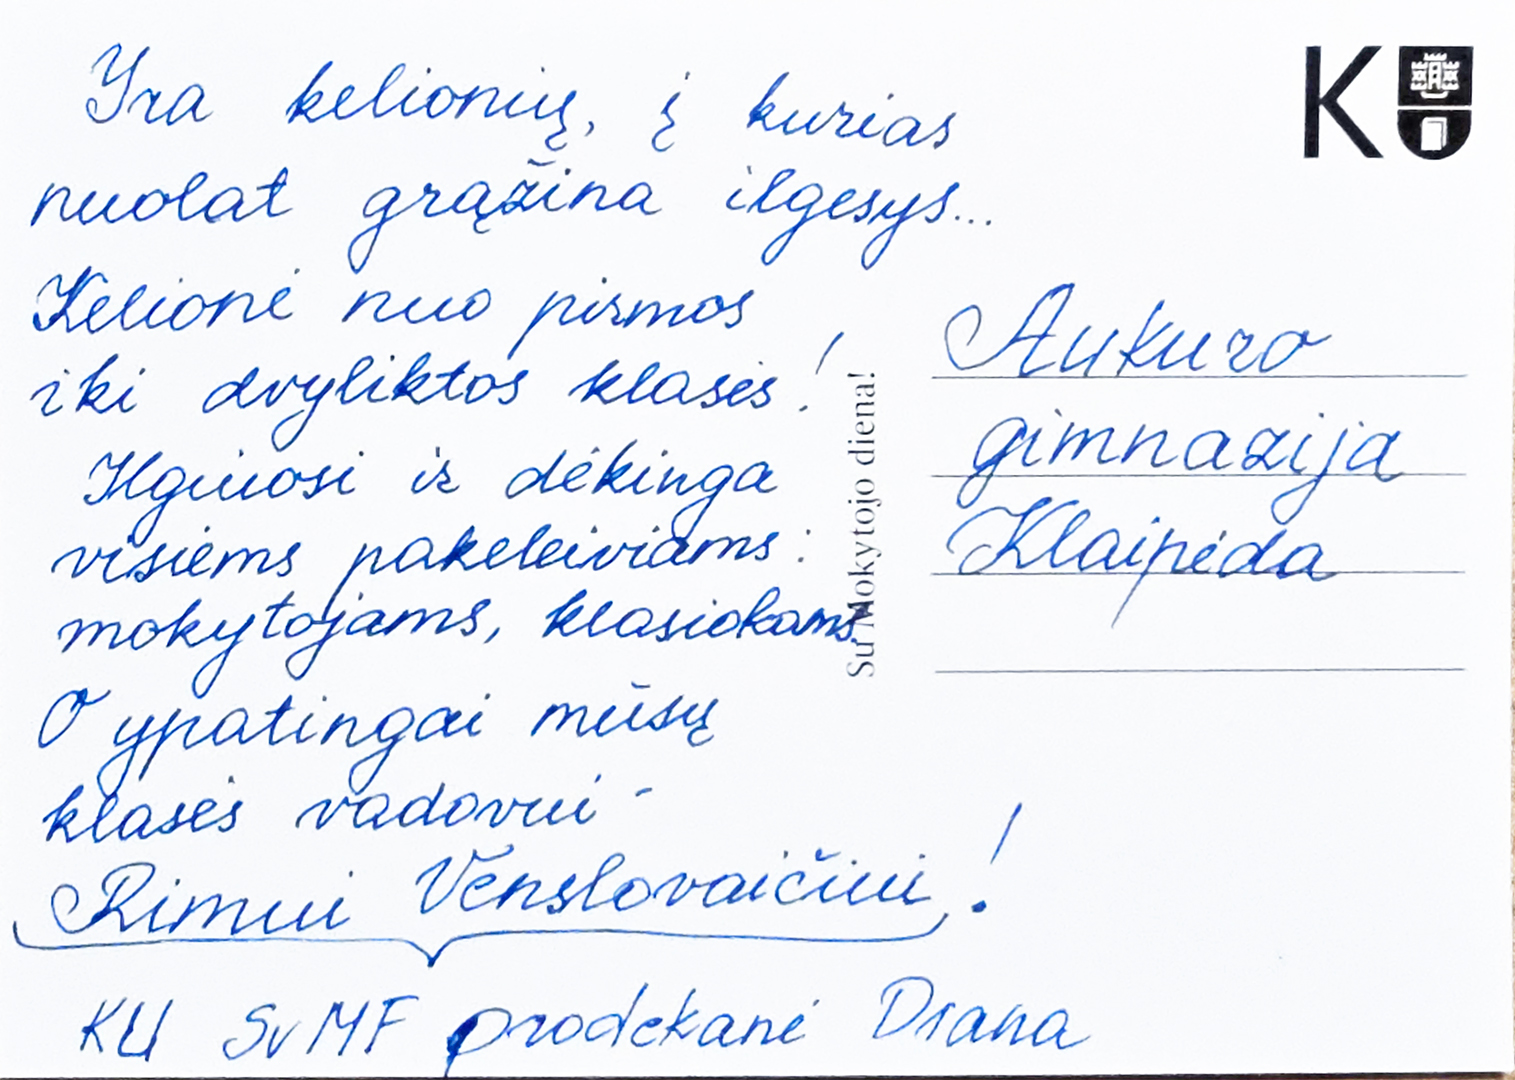 Yra kelionių, į kurias
nuolat grąžina ilgesys...
Kelionė nuo pirmos
iki dvyliktos klasės!
Ilgiuosi ir dėkinga
visiems pakeleiviams:
mokytojams, klasiokams.
O ypatingai mūsų
klasės vadovui -
Rimui Venslovaičiui!
KU SvMF prodekanė Diana
Su Mokytojo diena!
KU
Aukuro
gimnazija
Klaipėda